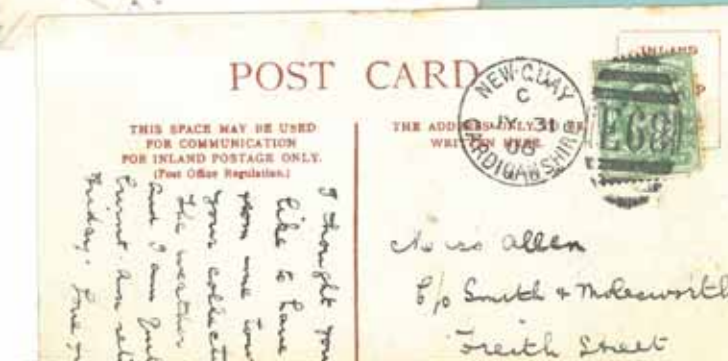 POST CARD
THIS SPACE MAY BE USED
FOR COMMUNICATION
FOR INLAND POSTAGE ONLY.
(Post Office Regulation.)
THE ADDRESS ONLY TO BE
WRITTEN HERE.
NEW-QUAY
C
JY 31
08
CARDIGANSHIRE
E68
INLAND
I thought you
like to have
from me
your collect
the weather
and I am
burnt. Am
Friday.
Allen
c/o Smith & Molesworth
Freith Street